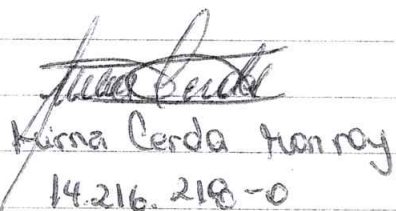 Mirna Cerda Monroy
14.216.218-0